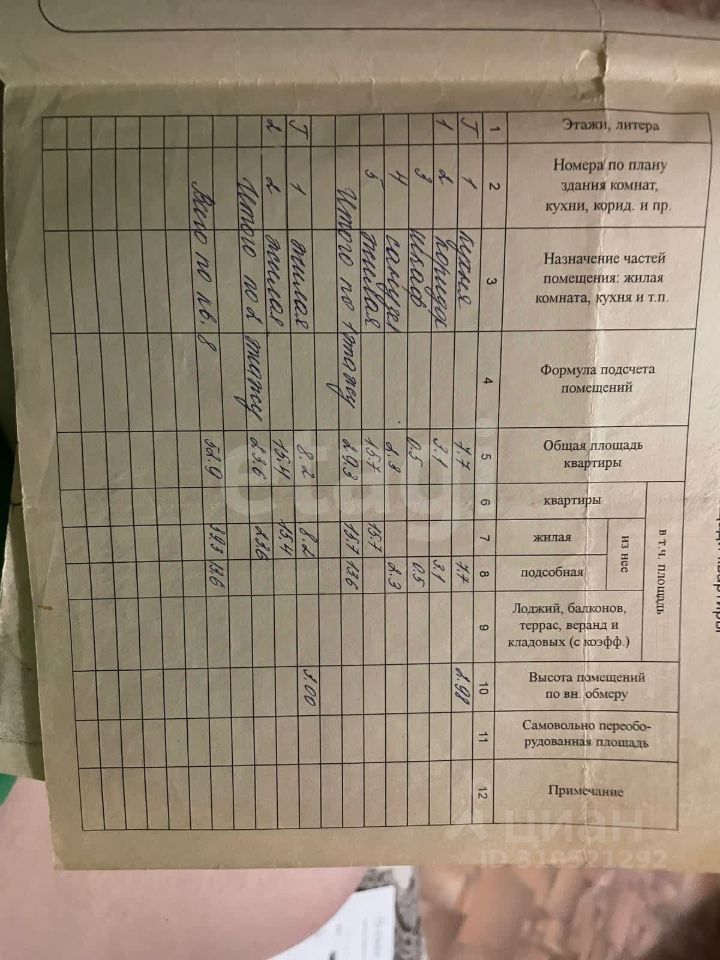 Этажи, литера
Номера по плану
здания комнат,
кухни, корид. и пр.
Назначение частей
помещения: жилая
комната, кухня и т.п.
Формула подсчета
помещений
Общая площадь
квартиры
в т.ч. площадь
квартиры
из нее
жилая
подсобная
Лоджий, балконов,
террас, веранд и
кладовых (с коэфф.)
Высота помещений
по вн. обмеру
Самовольно переобо-
рудованная площадь
Примечание
1 2 3 4 5 6 7 8 9 10 11 12
Г 1 кухня 7.7 7.7 2.98
1 2 коридор 3.1 3.1
3 шкаф 0.5 0.5
4 санузл 2.3 2.3
5 жилая 15.7 15.7
Итого по 1 этажу 29.3 15.7 13.6
Г 1 жилая 8.2 8.2 3.00
2 2 жилая 15.4 15.4
Итого по 2 этажу 23.6 23.6
Всего по кв. 8 52.9 39.3 13.6
etagi
циан
ID 310521292